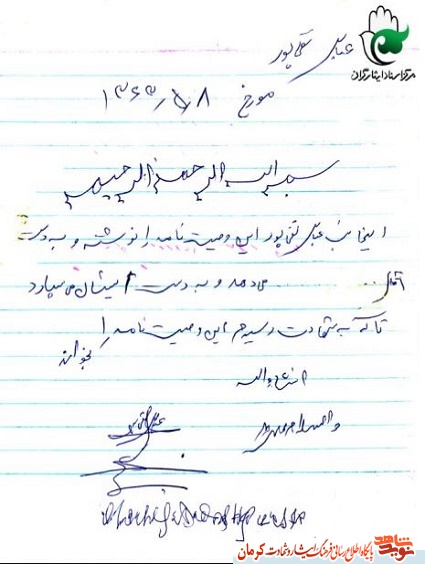 عباس تقی پور
مرکز اسناد ایثارگران
مورخ ۱۳۶۲/۵/۸
بسم الله الرحمن الرحیم
اینجانب عباس تقی پور این وصیت نامه را نوشته و به دست
آقای ... می دهد و به دست ایشان می سپارد
تا که به شهادت رسیدم این وصیت نامه را
بخوان
انشاءالله
والسلام
نوید شاهد پایگاه اطلاع رسانی فرهنگ ایثار و شهادت کرمان